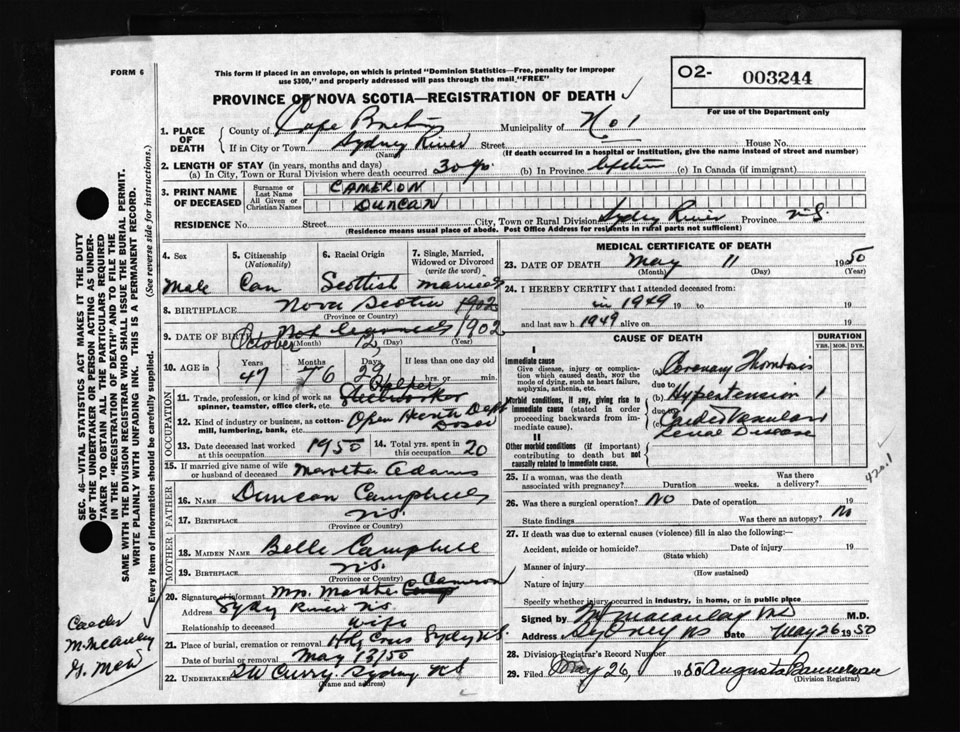 FORM 6
This form if placed in an envelope, on which is printed "Dominion Statistics—Free, penalty for improper
use $300," and properly addressed will pass through the mail "FREE"
O2- 003244
For use of the Department only
PROVINCE OF NOVA SCOTIA—REGISTRATION OF DEATH
1. PLACE OF DEATH
County of Cape Breton Municipality of No 1
If in City or Town Sydney River Street House No.
(Name) (If death occurred in a hospital or institution, give the name instead of street and number)
2. LENGTH OF STAY (in years, months and days)
(a) In City, Town or Rural Division where death occurred 30 yrs (b) In Province Lifetime (c) In Canada (if immigrant)
3. PRINT NAME OF DECEASED
Surname or Last Name CAMERON
All Given or Christian Names DUNCAN
RESIDENCE No. Street City, Town or Rural Division Sydney River Province N.S.
(Residence means usual place of abode. Post Office Address for residents in rural parts not sufficient)
4. Sex Male
5. Citizenship (Nationality) Can
6. Racial Origin Scottish
7. Single, Married, Widowed or Divorced (write the word) married
8. BIRTHPLACE Nova Scotia 1902
(Province or Country)
9. DATE OF BIRTH October 12 1902
(Month) (Day) (Year)
10. AGE in Years Months Days If less than one day old
47 6 29 hrs. or min.
OCCUPATION
11. Trade, profession, or kind of work as spinner, teamster, office clerk, etc. Helper Steelworker
12. Kind of industry or business, as cotton-mill, lumbering, bank, etc. Open Hearth Dept Dosco
13. Date deceased last worked at this occupation 1950
14. Total yrs. spent in this occupation 20
15. If married give name of wife or husband of deceased Martha Adams
FATHER
16. NAME Duncan Campbell
17. BIRTHPLACE N.S.
(Province or Country)
MOTHER
18. MAIDEN NAME Belle Campbell
19. BIRTHPLACE N.S.
(Province or Country)
20. Signature of informant Mrs. Martha Camp Cameron
Address Sydney River N.S.
Relationship to deceased wife
21. Place of burial, cremation or removal Holy Cross Sydney N.S.
Date of burial or removal May 13/50
22. UNDERTAKER T W Curry Sydney N S
(Name and address)
MEDICAL CERTIFICATE OF DEATH
23. DATE OF DEATH May 11 1950
(Month) (Day) (Year)
24. I HEREBY CERTIFY that I attended deceased from:
in 1949 19 to 19
and last saw h 1949 alive on 19
CAUSE OF DEATH
DURATION
YRS. MOS. DYS.
I
Immediate cause
Give disease, injury or complication which caused death, not the mode of dying, such as heart failure, asphyxia, asthenia, etc.
(a) Coronary Thrombosis
due to
Morbid conditions, if any, giving rise to immediate cause (stated in order proceeding backwards from immediate cause).
(b) Hypertension 1
due to
(c) Cardio Vascular Renal Disease
II
Other morbid conditions (if important) contributing to death but not causally related to immediate cause.
420.1
25. If a woman, was the death associated with pregnancy? Duration weeks. Was there a delivery?
26. Was there a surgical operation? No Date of operation 19
State findings Was there an autopsy? No
27. If death was due to external causes (violence) fill in also the following:
Accident, suicide or homicide? Date of injury 19
(State which)
Manner of injury
(How sustained)
Nature of injury
Specify whether injury occurred in industry, in home, or in public place
Signed by Macaulay M.D.
Address Sydney NS Date May 26 1950
28. Division Registrar's Record Number
29. Filed May 26, 1950 Augusta
(Division Registrar)
SEC. 46—VITAL STATISTICS ACT MAKES IT THE DUTY
OF THE UNDERTAKER OR PERSON ACTING AS UNDER-
TAKER TO OBTAIN ALL THE PARTICULARS REQUIRED
IN THE "REGISTRATION OF DEATH" AND TO FILE THE
SAME WITH THE DIVISION REGISTRAR WHO SHALL ISSUE THE BURIAL PERMIT.
WRITE PLAINLY WITH UNFADING INK. THIS IS A PERMANENT RECORD.
Every item of information should be carefully supplied. (See reverse side for instructions.)